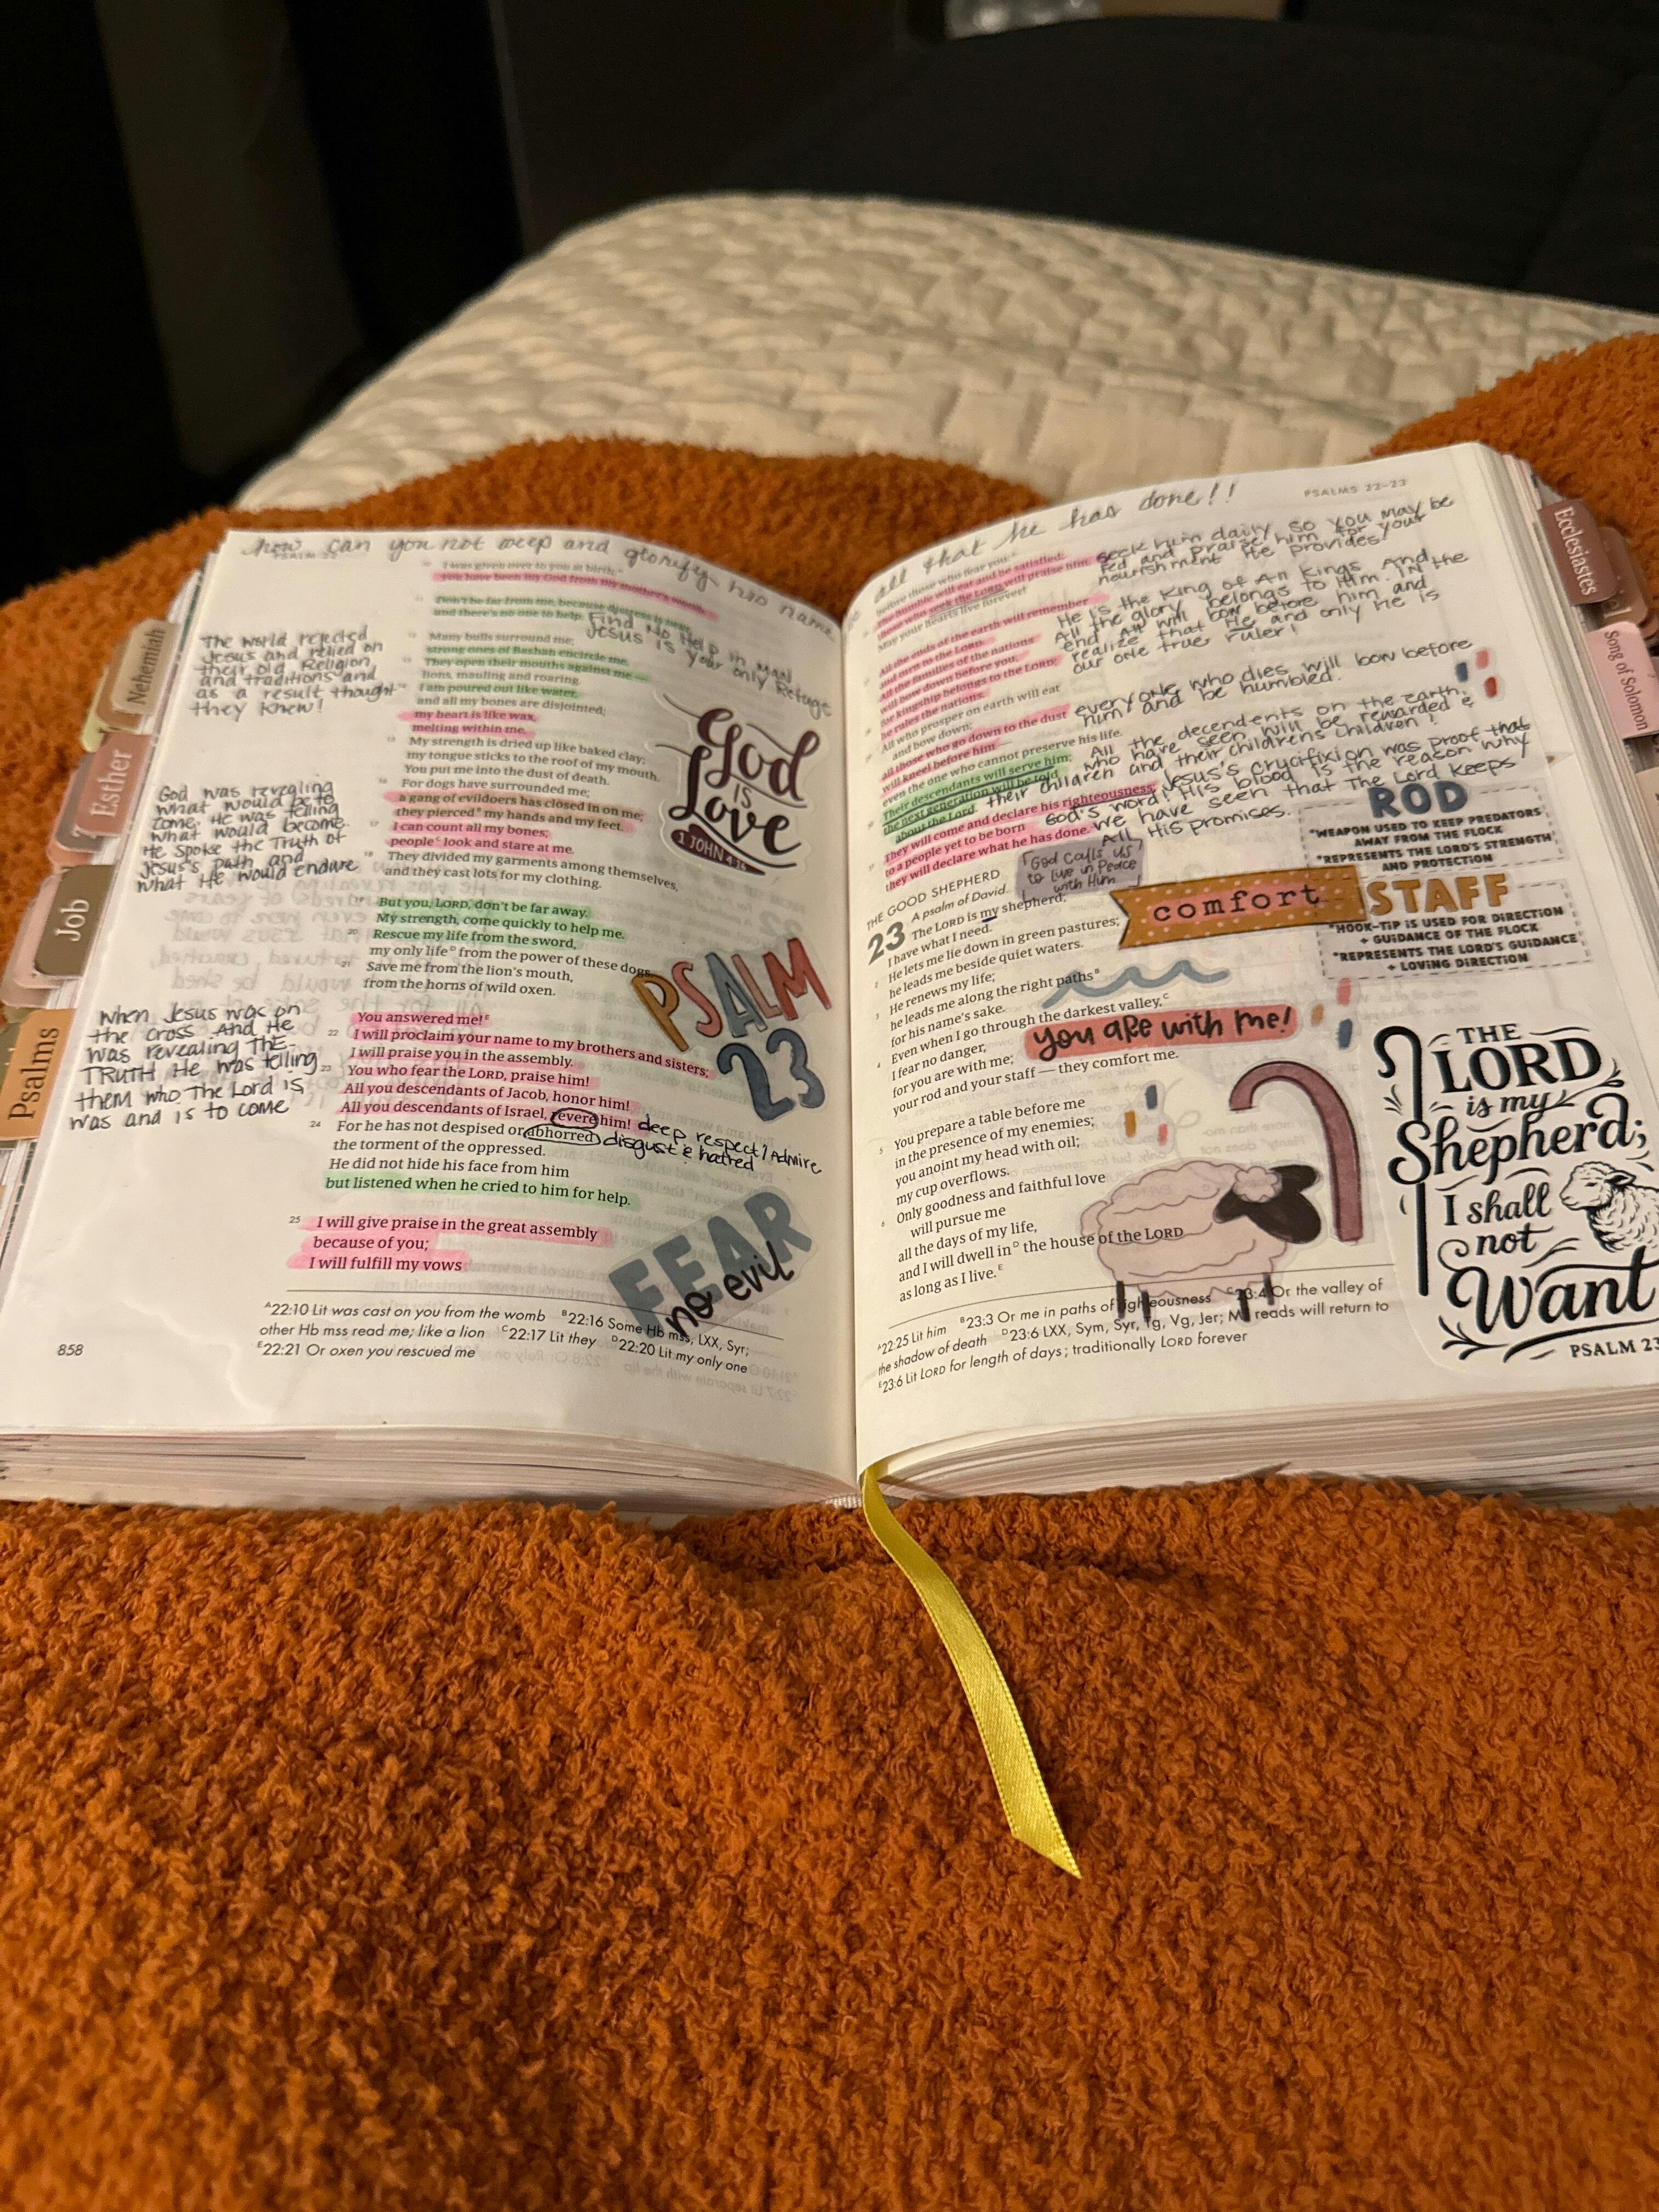 how can you not weep and glorify his name
10 I was given over to you at birth;A
you have been my God from my mother's womb.
11 Don't be far from me, because distress is near
and there's no one to help.
Find No Help in MAN
Jesus is your only Refuge
12 Many bulls surround me;
strong ones of Bashan encircle me.
13 They open their mouths against me —
lions, mauling and roaring.
14 I am poured out like water,
and all my bones are disjointed;
my heart is like wax,
melting within me.
15 My strength is dried up like baked clay;
my tongue sticks to the roof of my mouth.
You put me into the dust of death.
16 For dogs have surrounded me;
a gang of evildoers has closed in on me;
they piercedB my hands and my feet.
17 I can count all my bones;
peopleC look and stare at me.
18 They divided my garments among themselves,
and they cast lots for my clothing.
19 But you, LORD, don't be far away.
My strength, come quickly to help me.
20 Rescue my life from the sword,
my only lifeD from the power of these dogs.
21 Save me from the lion's mouth,
from the horns of wild oxen.
You answered me!E
22 I will proclaim your name to my brothers and sisters;
I will praise you in the assembly.
23 You who fear the LORD, praise him!
All you descendants of Jacob, honor him!
All you descendants of Israel, revere him!
deep respect / Admire
24 For he has not despised or abhorred
disgust & hatred
the torment of the oppressed.
He did not hide his face from him
but listened when he cried to him for help.
25 I will give praise in the great assembly
because of you;
I will fulfill my vows
The world rejected
Jesus and relied on
their old Religion,
and traditions and
as a result thought
they knew!
God was revealing
what would be to
come. He was telling
what would become.
He spoke the Truth of
Jesus's path and
what He would endure
When Jesus was on
the cross And He
was revealing THE
TRUTH He was telling
them who The Lord is
was and is to come
God
IS
Love
1 JOHN 4:16
PSALM
23
FEAR
no evil
A22:10 Lit was cast on you from the womb B22:16 Some Hb mss, LXX, Syr;
other Hb mss read me; like a lion C22:17 Lit they D22:20 Lit my only one
E22:21 Or oxen you rescued me
858
Nehemiah
Esther
Job
Psalms
all that he has done!!
PSALMS 22–23
before those who fear you.A
26 The humble will eat and be satisfied;
those who seek the LORD will praise him.
May your hearts live forever!
seek him daily so you may be
fed and praise him for your
nourishment He provides!
27 All the ends of the earth will remember
and turn to the LORD.
All the families of the nations
will bow down before you,
28 for kingship belongs to the LORD;
he rules the nations.
He's the King of All Kings And
All the glory belongs to Him. IN the
end All will bow before him and
realize that He and only he is
our one true ruler!
29 All who prosper on earth will eat
and bow down;
all those who go down to the dust
will kneel before him —
even the one who cannot preserve his life.
everyone who dies will bow before
him and be humbled.
30 Their descendants will serve him;
the next generation will be told
about the Lord.
All the decendents on the earth,
who have seen will be rewarded &
their children and their childrens children!
31 They will come and declare his righteousness;
to a people yet to be born
they will declare what he has done.
Jesus's crucifixion was proof that
God's word! His blood is the reason why
we have seen that The Lord keeps
All His promises.
THE GOOD SHEPHERD
A psalm of David.
God calls us
to live in Peace
with Him
23 The LORD is my shepherd;
I have what I need.
2 He lets me lie down in green pastures;
he leads me beside quiet waters.
3 He renews my life;
he leads me along the right pathsB
for his name's sake.
4 Even when I go through the darkest valley,C
I fear no danger,
for you are with me;
your rod and your staff — they comfort me.
5 You prepare a table before me
in the presence of my enemies;
you anoint my head with oil;
my cup overflows.
6 Only goodness and faithful love
will pursue me
all the days of my life,
and I will dwell inD the house of the LORD
as long as I live.E
comfort
you are with me!
ROD
*WEAPON USED TO KEEP PREDATORS
AWAY FROM THE FLOCK
*REPRESENTS THE LORD'S STRENGTH
AND PROTECTION
STAFF
*HOOK-TIP IS USED FOR DIRECTION
+ GUIDANCE OF THE FLOCK
*REPRESENTS THE LORD'S GUIDANCE
+ LOVING DIRECTION
THE
LORD
is my
Shepherd;
I shall
not
Want
PSALM 23
A22:25 Lit him B23:3 Or me in paths of righteousness C23:4 Or the valley of
the shadow of death D23:6 LXX, Sym, Syr, Tg, Vg, Jer; MT reads will return to
E23:6 Lit LORD for length of days; traditionally LORD forever
Ecclesiastes
Song of Solomon